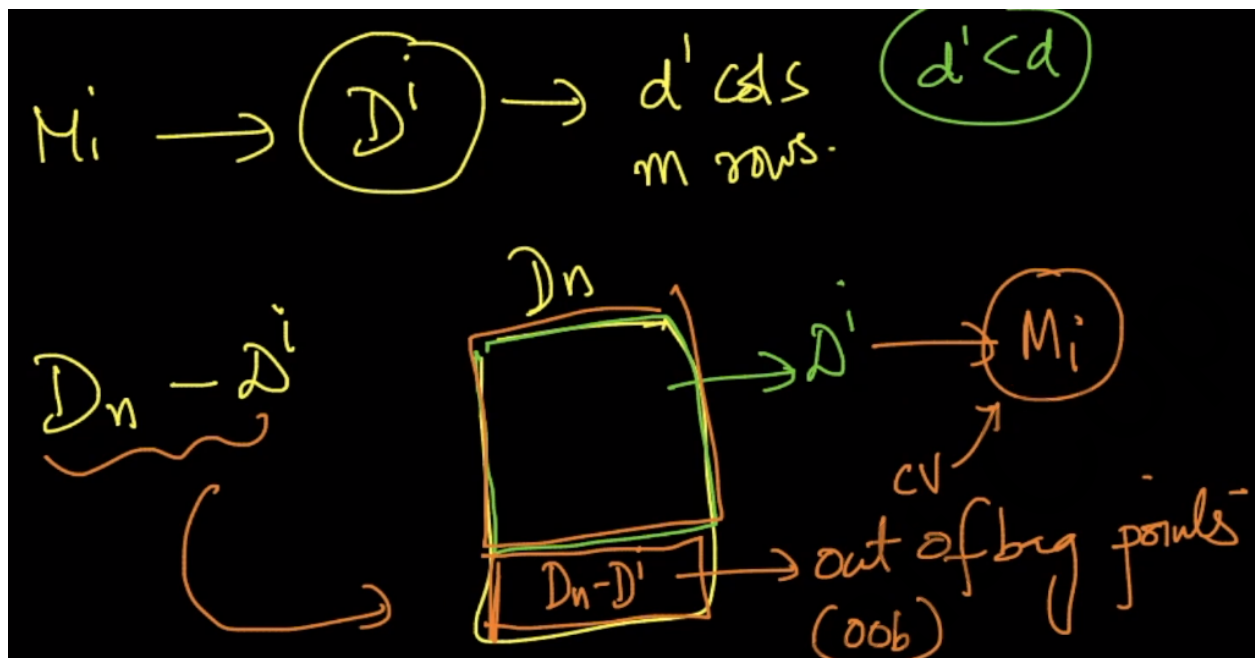 Mi → Dⁱ → d' cols d' < d
m rows.
Dn
Dn - Dⁱ → Dⁱ → Mi
CV
Dn-Dⁱ → out of bag points
(oob)